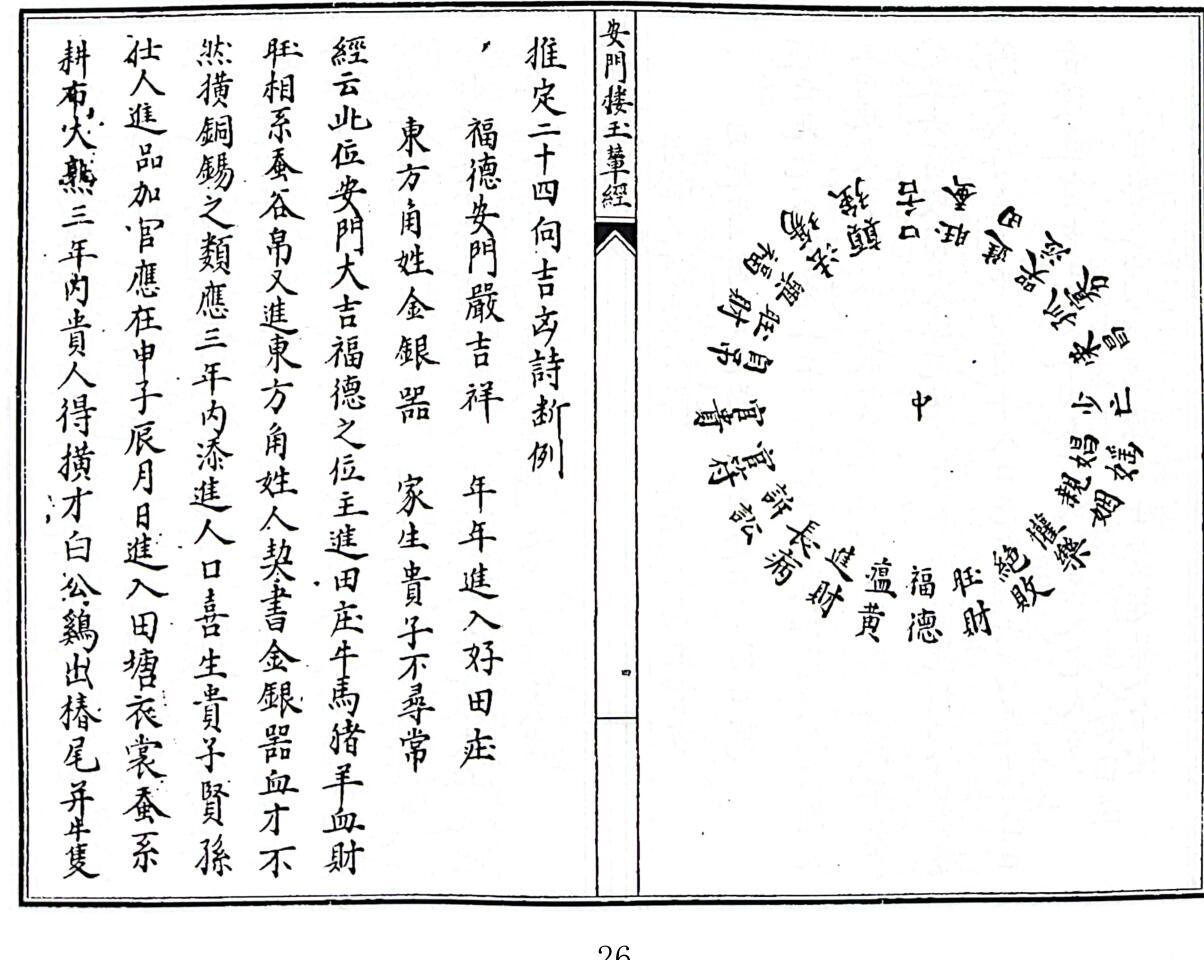 中
福德
瘟黃
進財
長病
訴訟
官符
官貴
自吊
旺財
興福
法場
顛
口舌
旺蚕
進田
哭泣
孤寡
榮昌
少亡
娼媱
親姻
懽樂
絕敗
旺財
安門楼玉輦經
四
推定二十四向吉凶詩断例
福德安門嚴吉祥　年年進入好田庄
東方角姓金銀器　家生貴子不尋常
經云此位安門大吉福德之位主進田庄牛馬猪羊血財
旺相糸蚕谷帛又進東方角姓人契書金銀器血才不
然橫銅錫之類應三年内添進人口喜生貴子賢孫
仕人進品加官應在申子辰月日進入田塘衣裳蚕糸
耕布大熟三年内貴人得橫才白公鷄出椿尾并牛隻
26